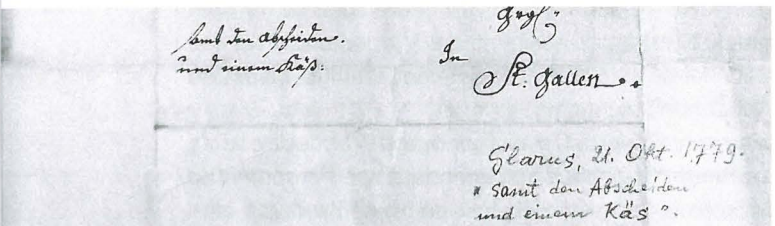 samt den Abscheiden.
und einem Käß:
In
St: Gallen.
Glarus, 21. Okt. 1779.
" samt den Abscheiden
und einem Käs ".